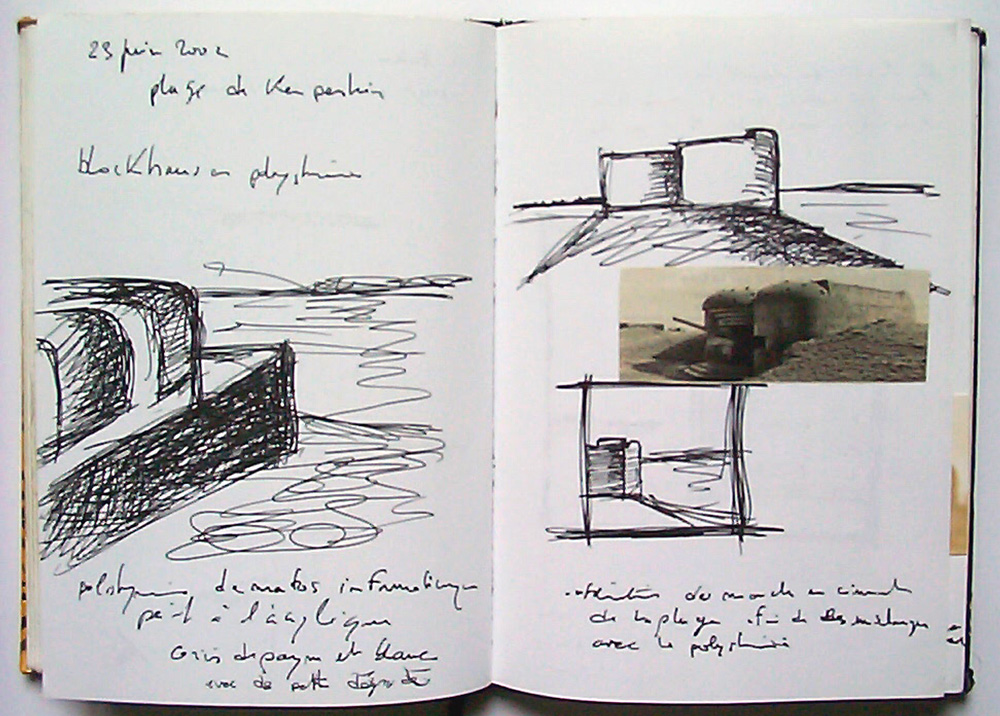 23 juin 2002
plage de
blockhaus en polystyrène
polystyrène de matos informatique
peint à l'acrylique
Gris de payne et blanc
avec de petits dégradés
de monde en ciment
de la plage afin de les mélanger
avec le polystyrène